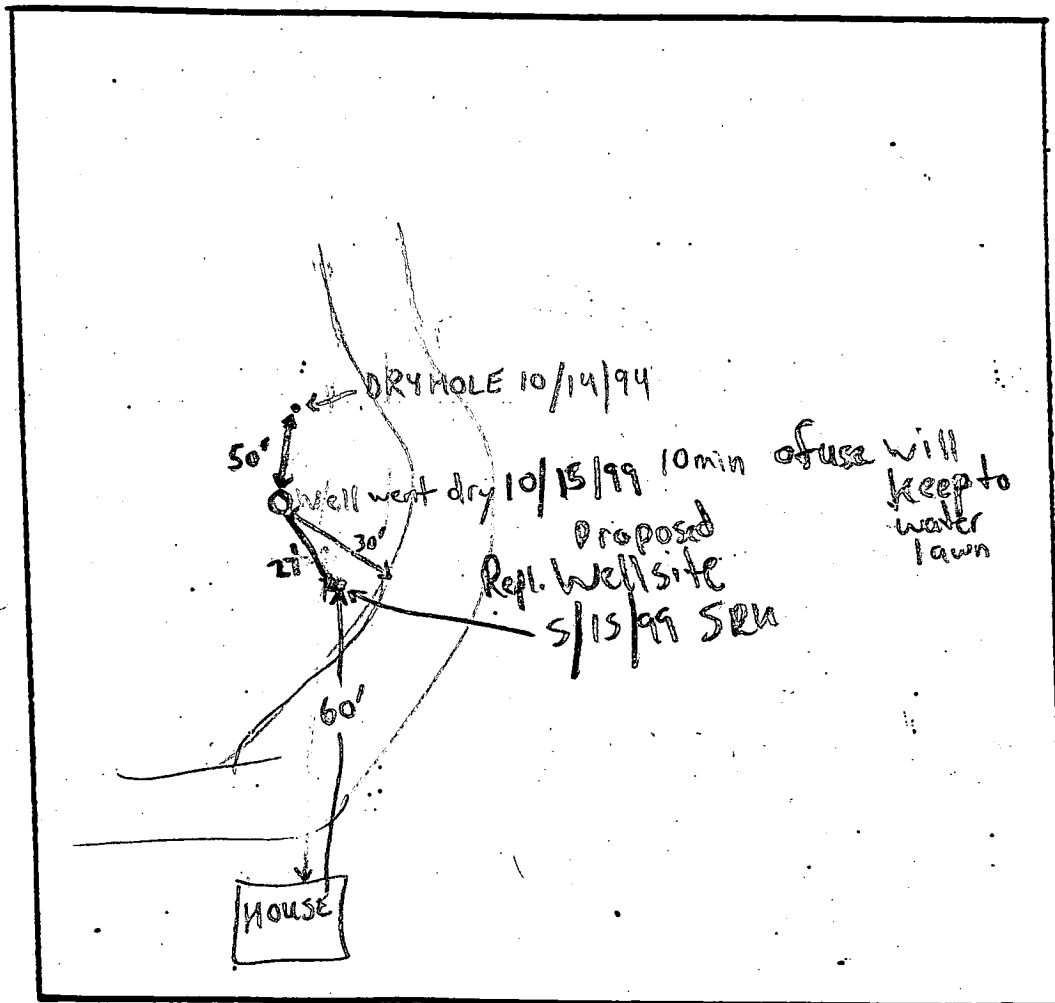 DRY HOLE 10/14/94
50'
Well went dry 10/15/99 10 min of use will
keep to
water
lawn
30'
Proposed
Repl. Well site
5/15/99
60'
HOUSE